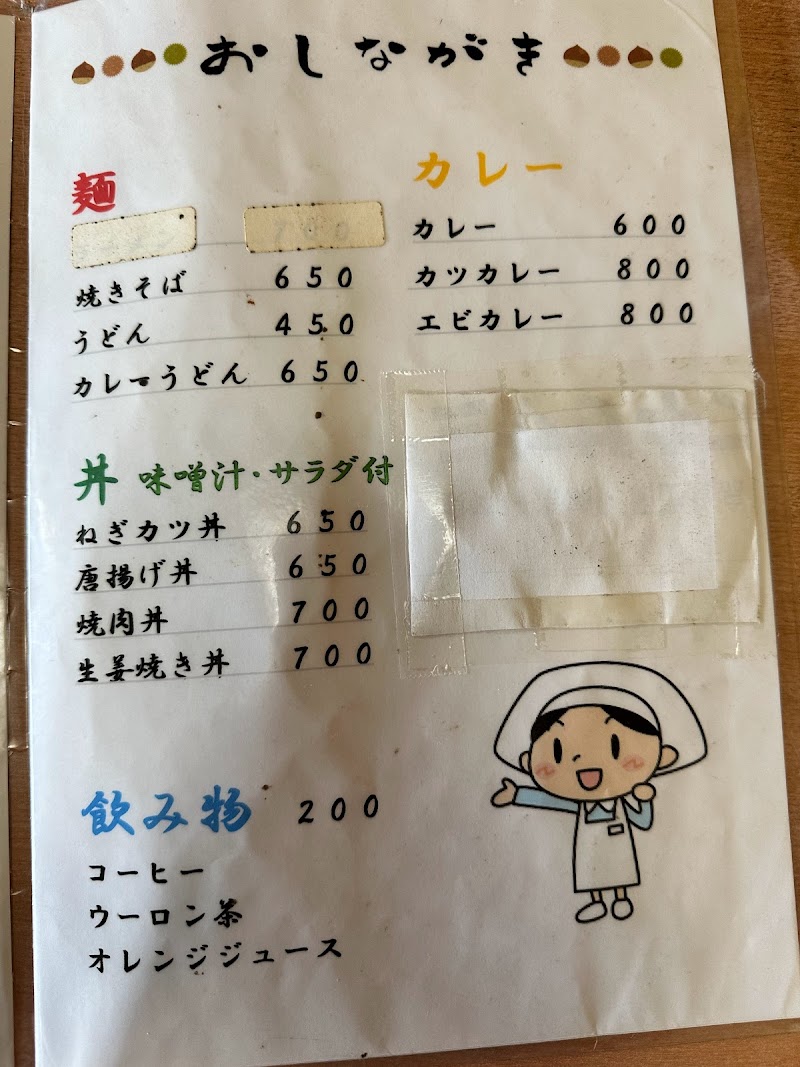 おしながき
麺
焼きそば 650
うどん 450
カレーうどん 650
丼 味噌汁・サラダ付
ねぎカツ丼 650
唐揚げ丼 650
焼肉丼 700
生姜焼き丼 700
飲み物 200
コーヒー
ウーロン茶
オレンジジュース
カレー
カレー 600
カツカレー 800
エビカレー 800